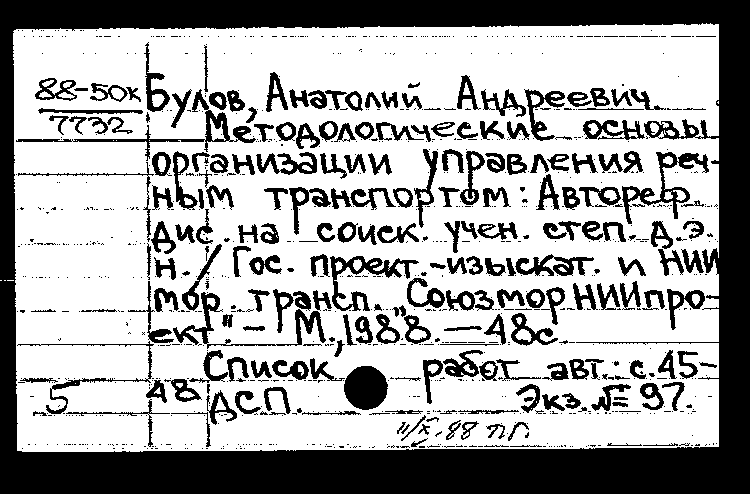 88-50к Булов, Анатолий Андреевич.
7732 Методологические основы
организации управления реч-
ным транспортом: Автореф.
дис. на соиск. учен. степ. д.э.
н. / Гос. проект.-изыскат. и НИИ
мор. трансп. "Союзморниипро-
ект". - М., 1988. - 48с.
Список работ авт.: с. 45-
48
5 ДСП. Экз. № 97.
11/X-88 пг.